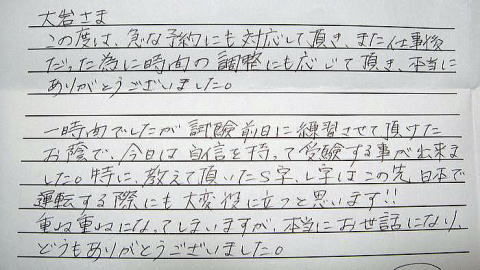 大岩さま
この度は、急な予約にも対応して頂き、また仕事後
だった為に時間の調整にも応じて頂き、本当に
ありがとうございました。
一時間でしたが試験前日に練習させて頂けた
お陰で、今日は自信を持って受験する事が出来ま
した。特に、教えて頂いたS字、L字はこの先日本で
運転する際にも大変役に立つと思います!!
重ね重ねになってしまいますが、本当にお世話になり、
どうもありがとうございました。